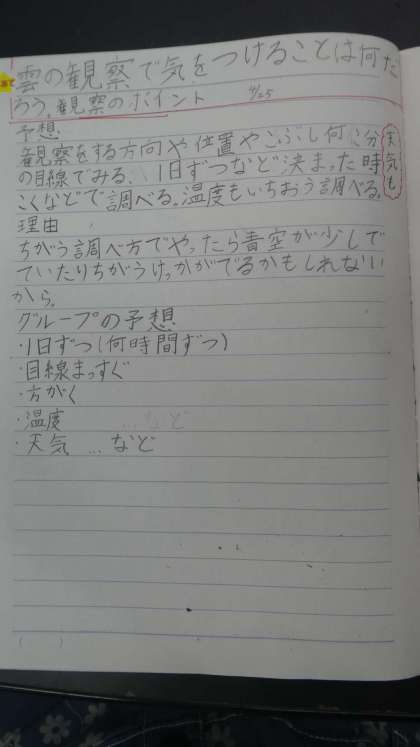 雲の観察で気をつけることは何だ
ろう。観察のポイント 4/25
予想
観察をする方向や位置やこぶし何こ分
の目線でみる、1日ずつなど、決まった時
こくなどで調べる。温度もいちおう調べる。
天気も
理由
ちがう調べ方でやったら青空が少しで
ていたりちがうけっかがでるかもしれない
から。
グループの予想
・1日ずつ(何時間ずつ)
・目線まっすぐ
・方がく
・温度
・天気 …など
( )